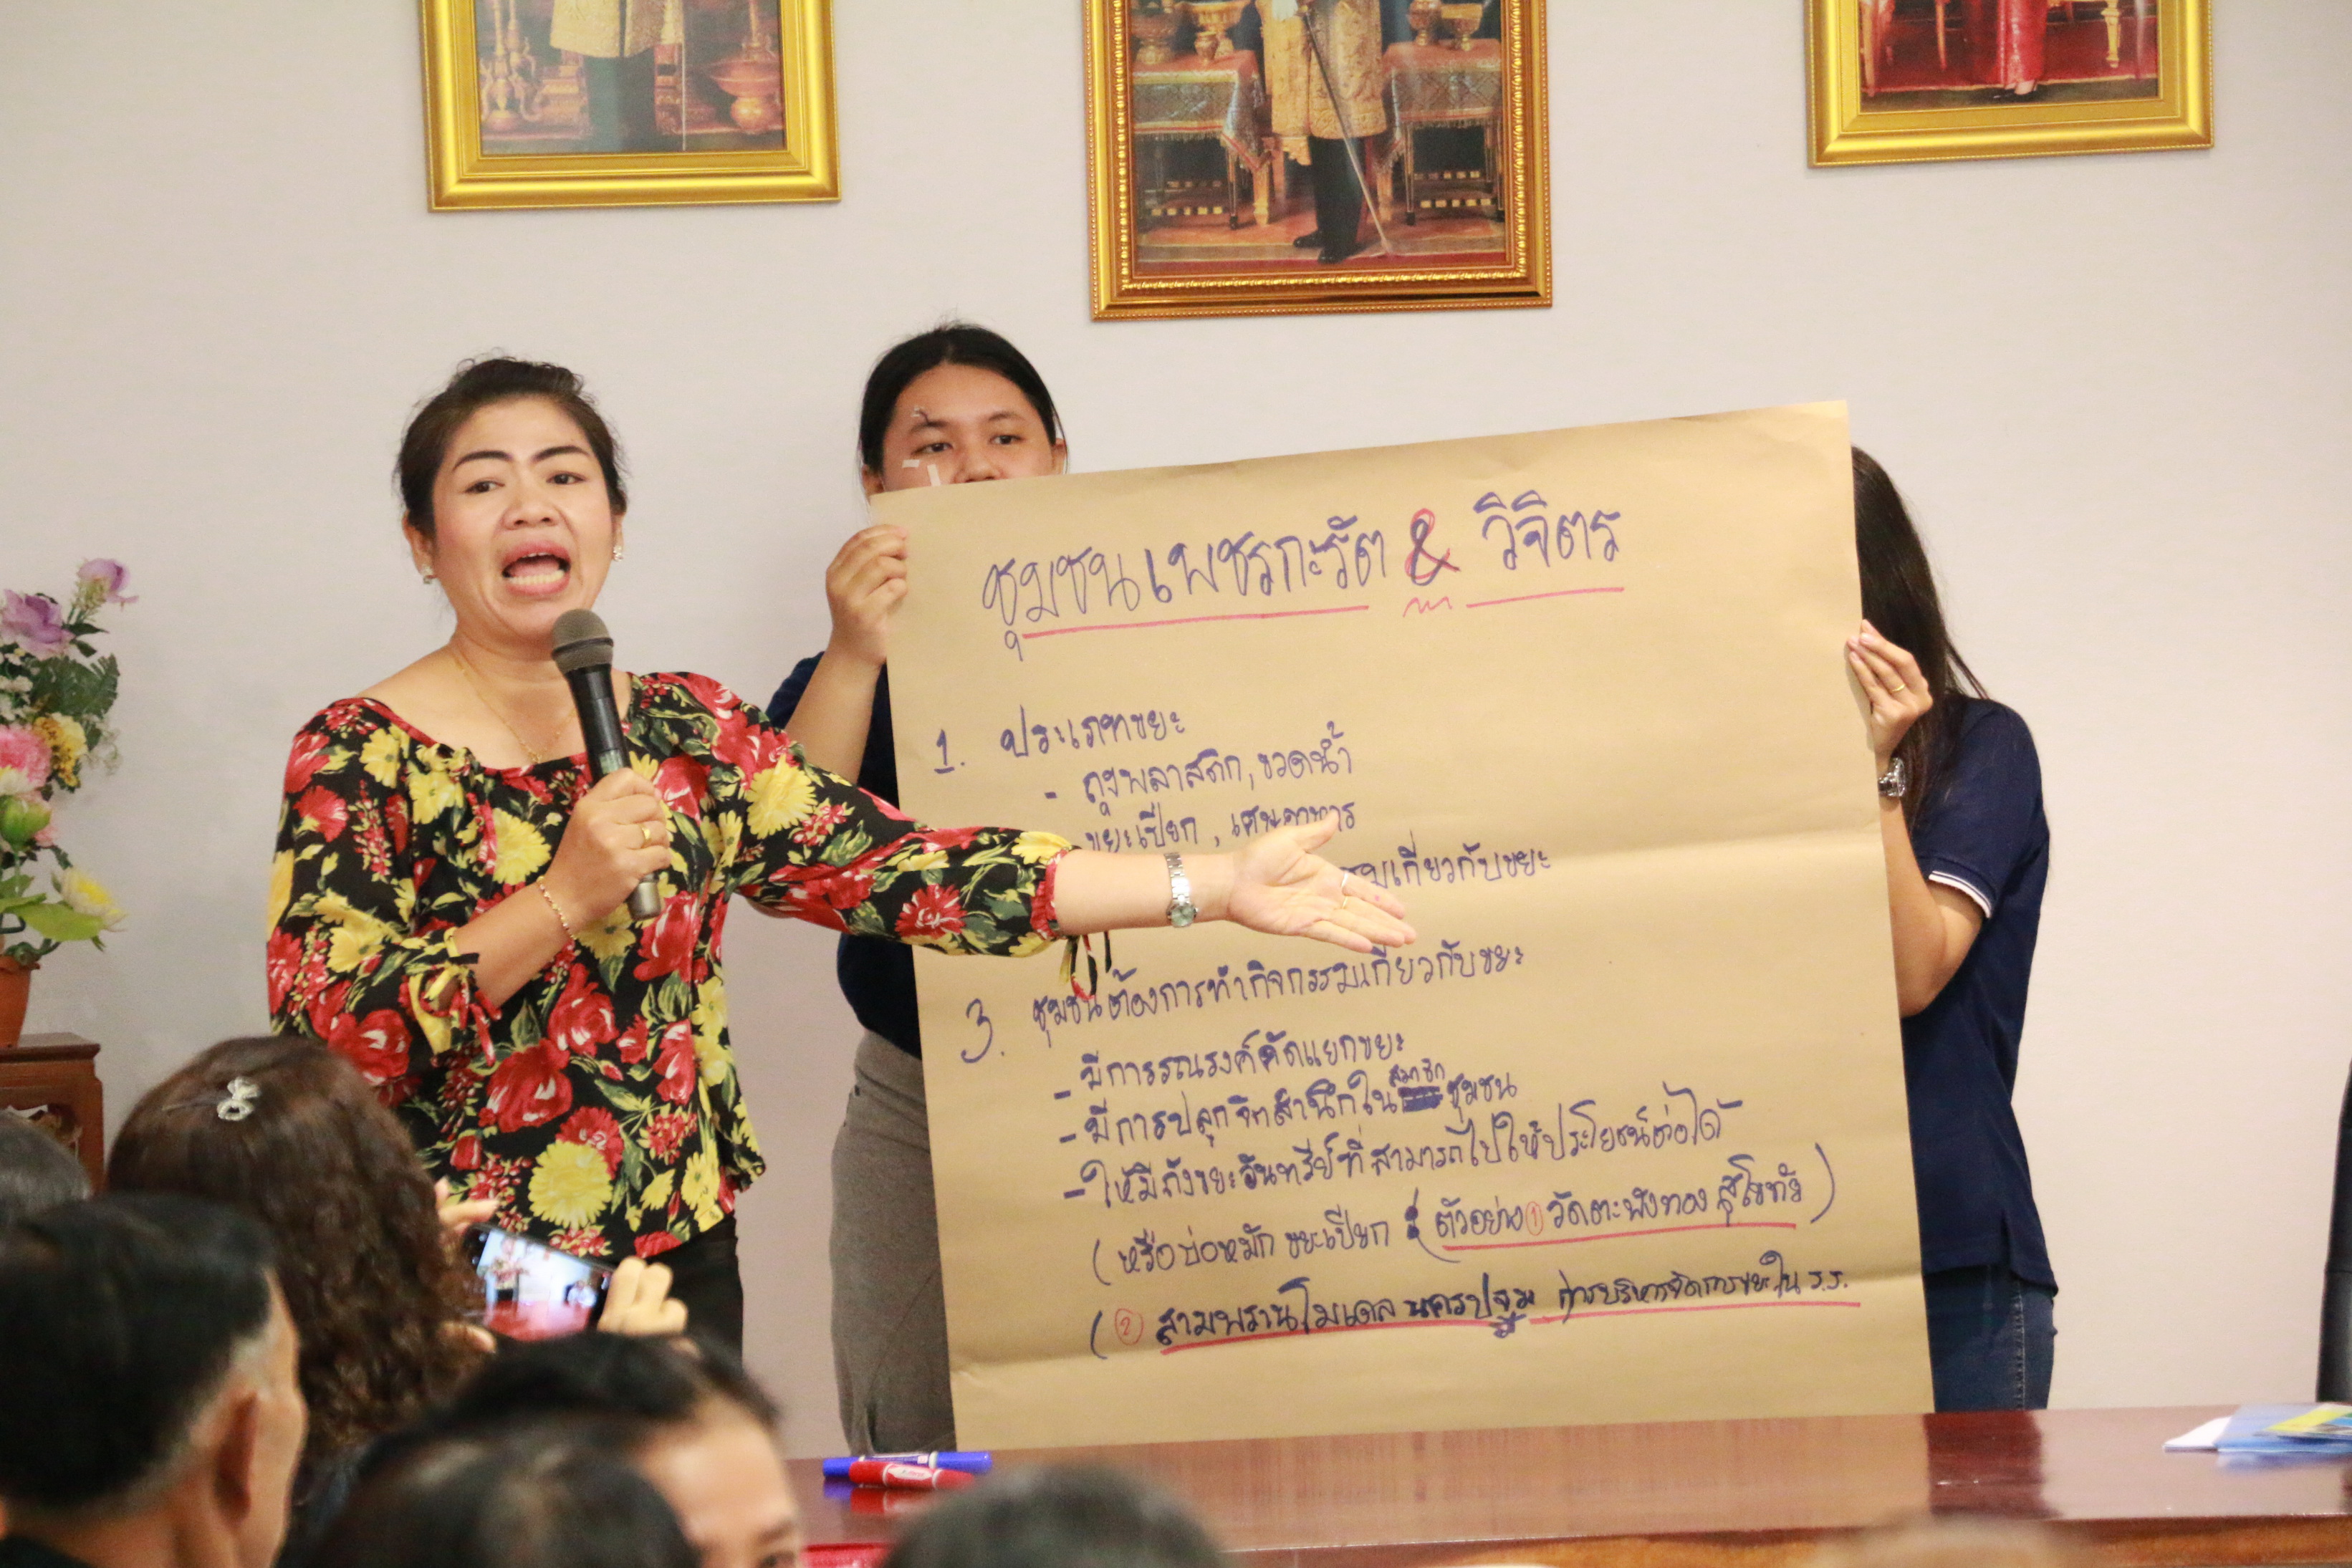 ชุมชนเพชรกะรัต & วิจิตร
1. ประเภทขยะ
- ถุงพลาสติก, ขวดน้ำ
ขยะเปียก, เศษอาหาร
เกี่ยวกับขยะ
3. ชุมชนต้องการทำกิจกรรมเกี่ยวกับขยะ
- มีการรณรงค์คัดแยกขยะ
- มีการปลุกจิตสำนึกในสมาชิกชุมชน
- ให้มีถังขยะอินทรีย์ที่สามารถไปใช้ประโยชน์ต่อได้
(หรือบ่อหมักขยะเปียก (ตัวอย่าง ① วัดตะพังทอง สุโขทัย)
(② สามพรานโมเดล นครปฐม การบริหารจัดการขยะใน ร.ร.